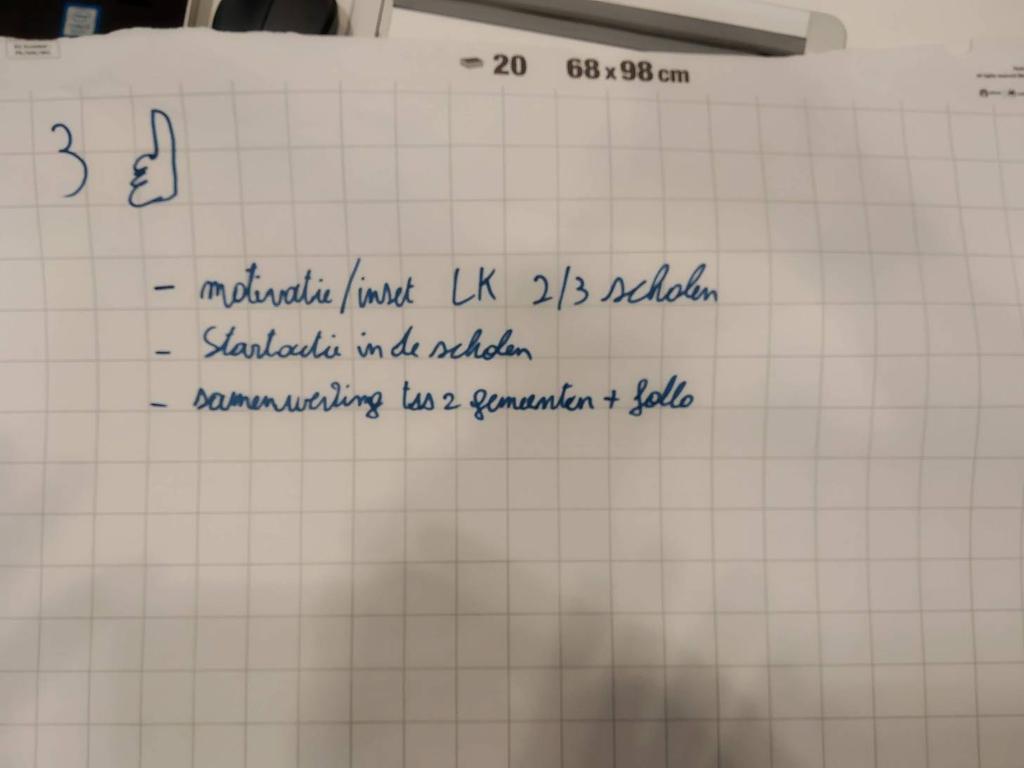 20 68 x 98 cm
3
- motivatie/inzet LK 2/3 scholen
- Startactie in de scholen
- samenwerking tss 2 gemeenten + follo